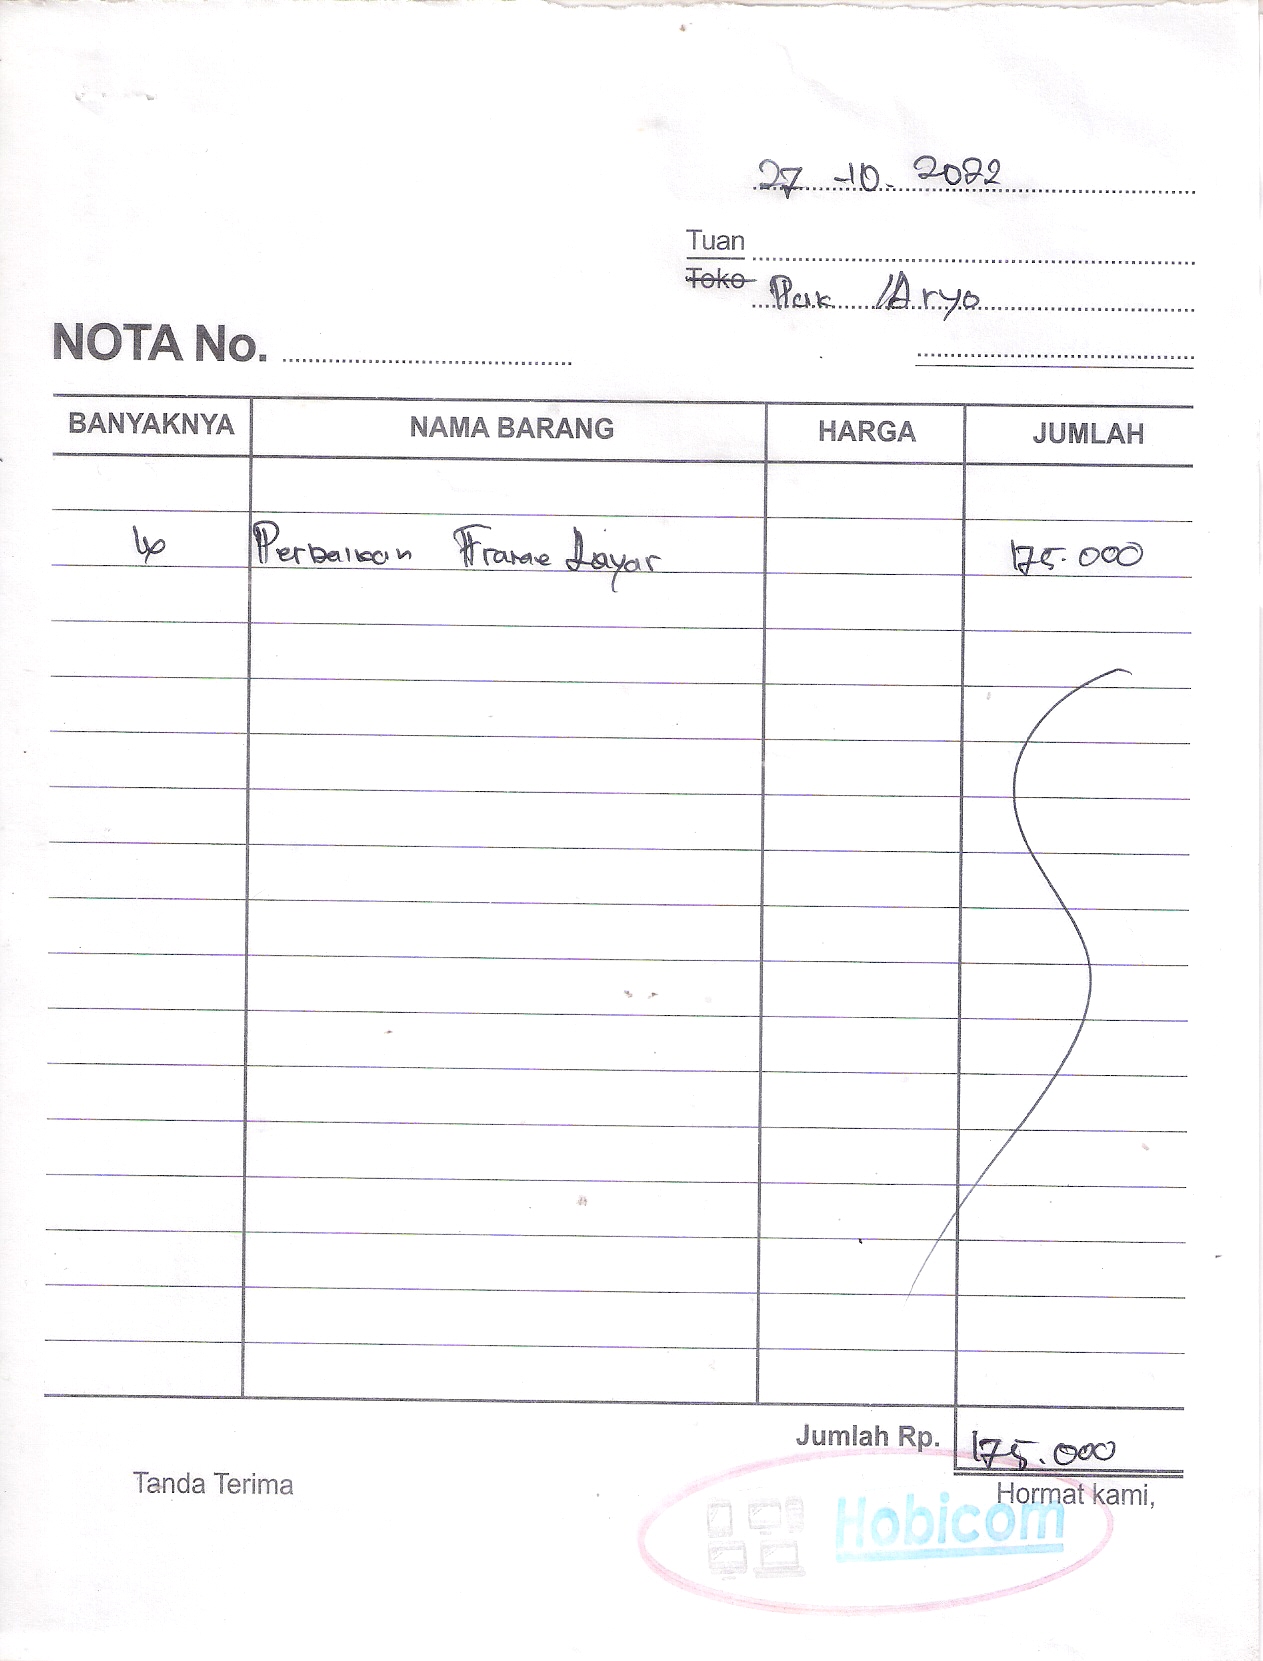 27 -10. 2022
Tuan
Toko Pak Aryo
NOTA No.
BANYAKNYA NAMA BARANG HARGA JUMLAH
Perbaikan Frame Layar 175.000
Jumlah Rp. 175.000
Tanda Terima Hormat kami,
Hobicom